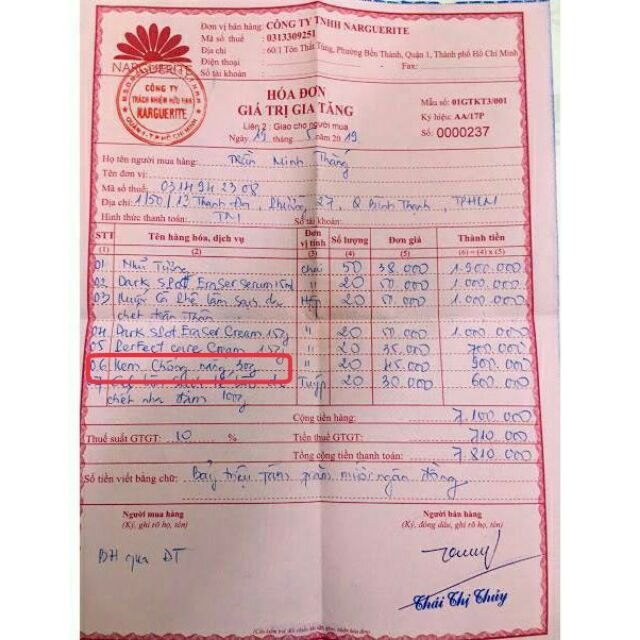 NARGUERITE
Đơn vị bán hàng: CÔNG TY TNHH NARGUERITE
Mã số thuế : 0313309251
Địa chỉ : 60.1 Tôn Thất Tùng, Phường Bến Thành, Quận 1, Thành phố Hồ Chí Minh
Điện thoại : Fax:
Số tài khoản :
CÔNG TY
TRÁCH NHIỆM HỮU HẠN
NARGUERITE
HÓA ĐƠN
GIÁ TRỊ GIA TĂNG
Liên 2: Giao cho người mua
Ngày 19 tháng 5 năm 2019
Mẫu số: 01GTKT3/001
Ký hiệu: AA/17P
Số: 0000237
Họ tên người mua hàng: Trần Minh Thắng
Tên đơn vị:
Mã số thuế: 0314942308
Địa chỉ: 1/50/12 Thanh Đa, Phường 27, Q Bình Thạnh, TPHCM
Hình thức thanh toán: TM Số tài khoản:
STT Tên hàng hóa, dịch vụ Đơn vị tính Số lượng Đơn giá Thành tiền
(1) (2) (3) (4) (5) (6) = (4) x (5)
01 50 38.000 1.900.000
02 Dark Spot Eraser Serum 15ml " 20 50.000 1.000.000
03 20 50.000 1.000.000
chết
04 Dark Spot Eraser Cream 15g " 20 50.000 1.000.000
05 Perfect care Cream 15g " 20 35.000 700.000
06 Kem chống nắng 30g " 20 45.000 900.000
07 Tuýp 20 30.000 600.000
chết nha đam 100g
Cộng tiền hàng: 7.100.000
Thuế suất GTGT: 10 % Tiền thuế GTGT: 710.000
Tổng cộng tiền thanh toán: 7.810.000
Số tiền viết bằng chữ: Bảy triệu tám trăm mười ngàn đồng
Người mua hàng Người bán hàng
(Ký, ghi rõ họ, tên) (Ký, đóng dấu, ghi rõ họ, tên)
BH qua ĐT
Thái Thị Thủy